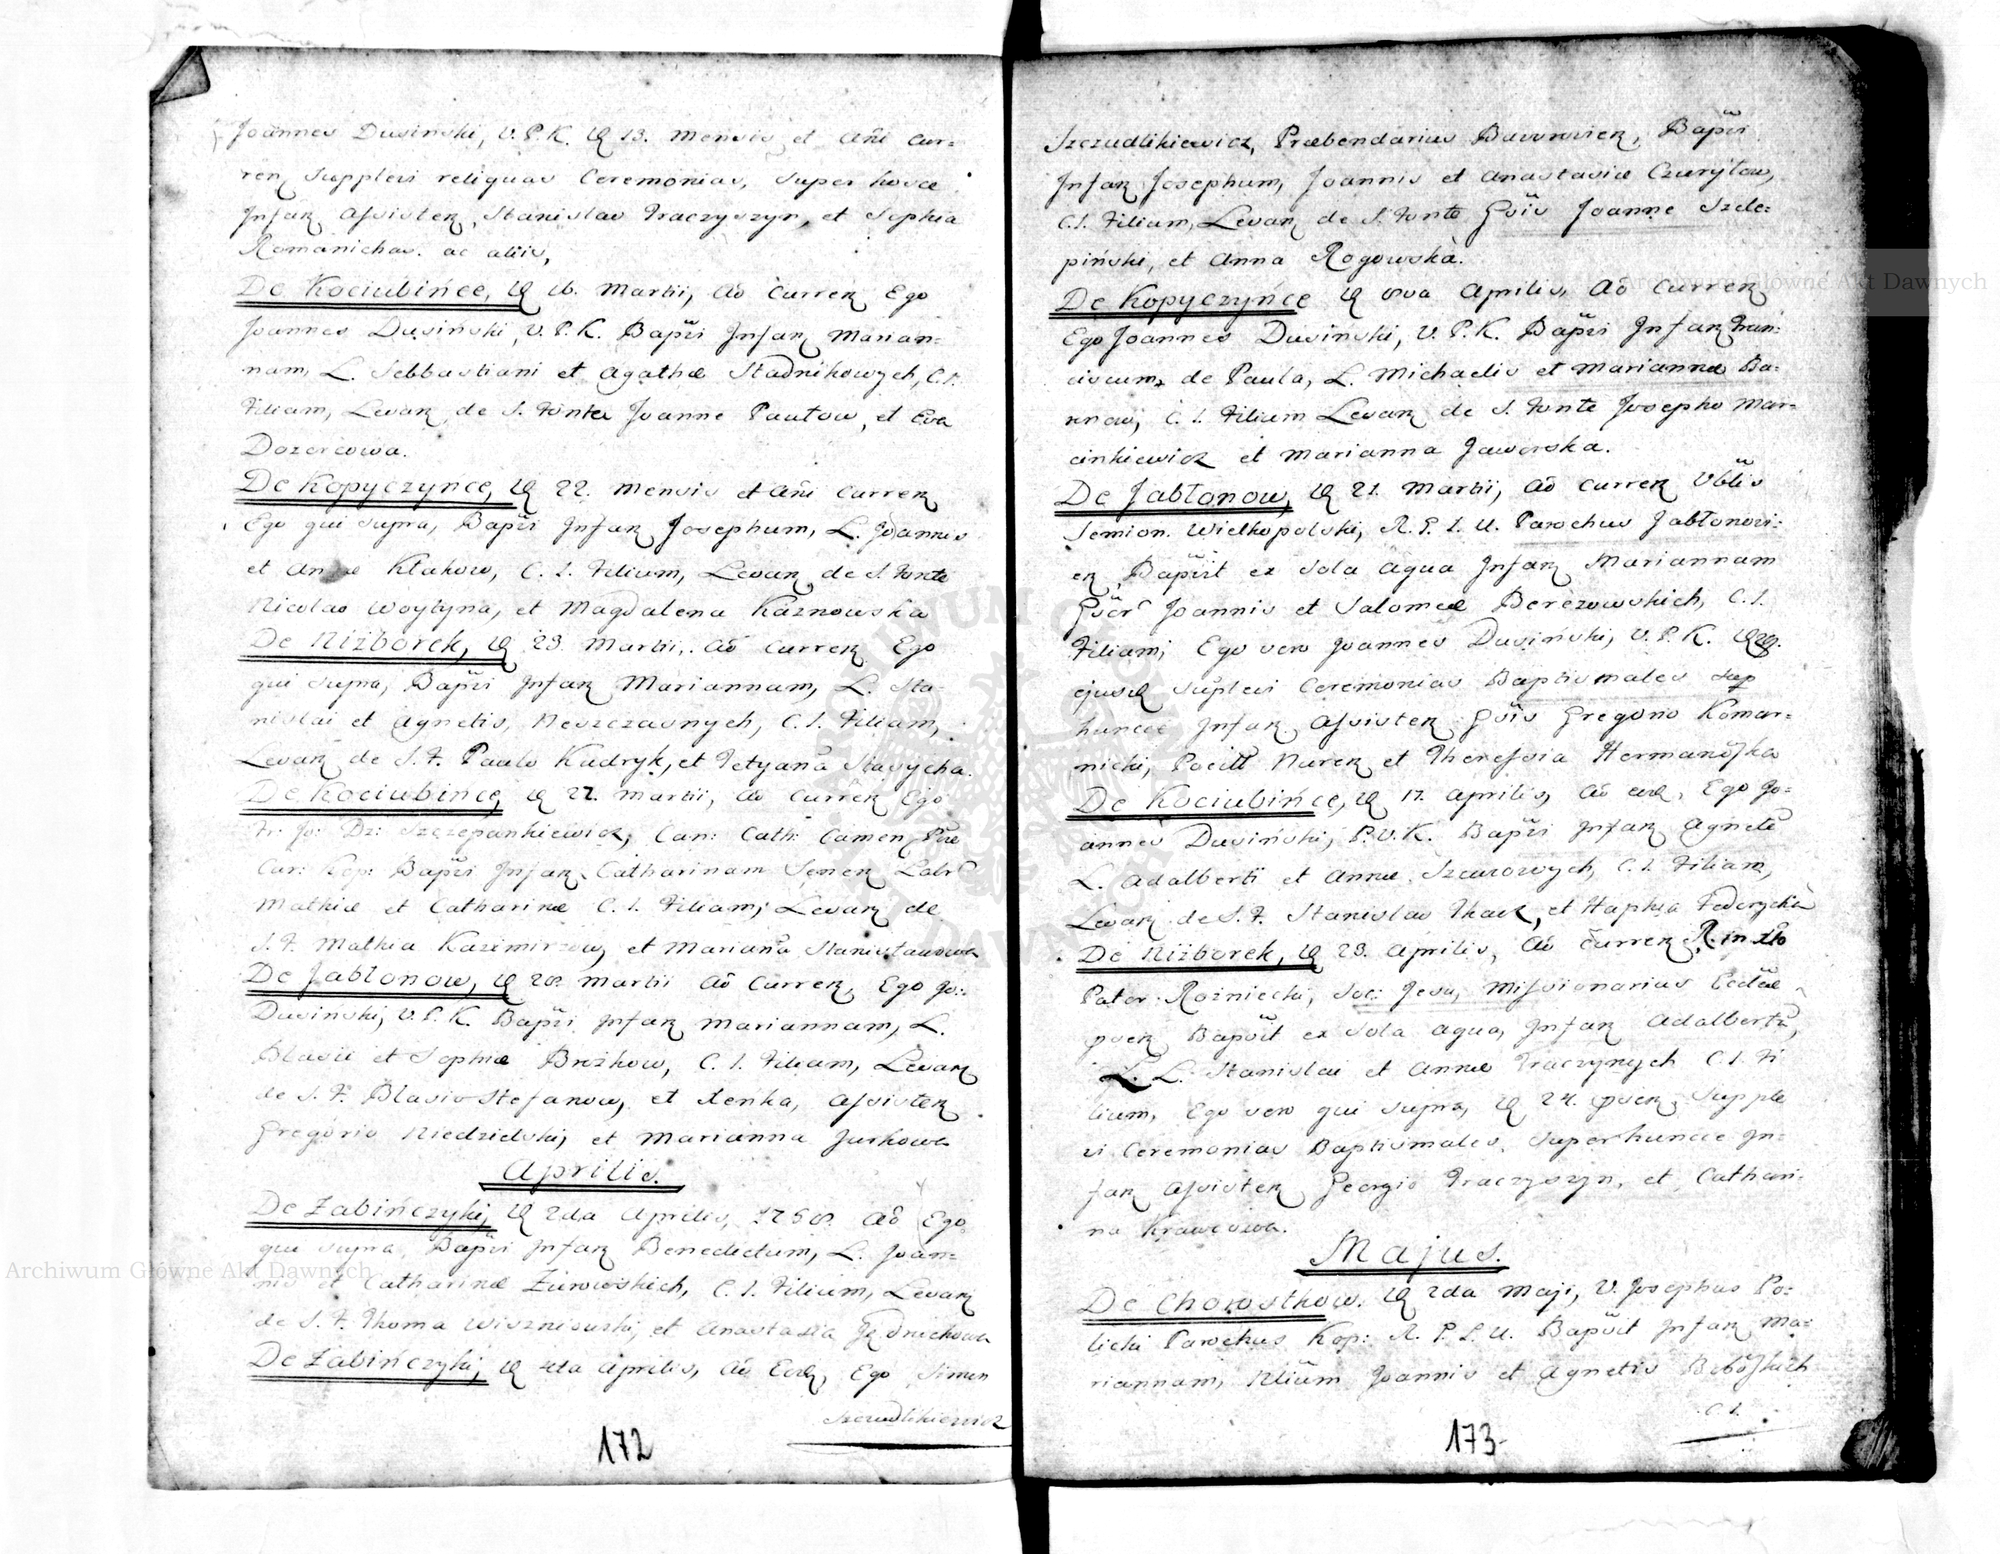 Joannes Dusinski, V. P. K. d 13. Mensis et Añi Cur=
ren Supplevi reliquas Ceremonias, super hosce
Infan Assisten, Stanislao Traczyszyn, et Sophia
Romanichas. ac aliis,
De Kociubińce, d 16. Martii, Aō Curren Ego
Joannes Dusiński, V. P. K. Bapizi Infan Marian=
nam, L. Sebbastiani et Agathæ Stadnikowych, C. L.
Filiam, Levan de S. Fonte Joanne Pautow, et Eva
Dozorcowa.
De Kopyczynce, d 22. Mensis et Añi Curren
Ego qui supra, Bapizi Infan Josephum, L. Joannis
et Annæ Kłakow, C. L. Filium, Levan de S. Fonte
Nicolao Woytyna, et Magdalena Kaznowska
De Niżborek, d 23. Martii, Aō Curren Ego
qui supra, Bapizi Infan Mariannam, L. Sta=
nislai et Agnetis, Neszczasnych, C. L. Filiam,
Levan de S. F. Paulo Kudryk, et Tetyana Stasycha.
De Kociubince, d 27. Martii, Aō Curren Ego
Fr: Jo: Dz: Szczepankiewicz, Can: Cath: Camen,
Cur: Kop: Bapizi Infan Catharinam Senen Labr
Mathiæ et Catharinæ C. L. Filiam; Levan de
S. F. Mathia Kazimirzow, et Mariana Stanisławowa
De Jabłonow, d 28. Martii Aō Curren, Ego Jo:
Dusinski, V. P. K. Bapizi Infan Mariannam, L.
Blasii et Sophiæ Brożkow, C. L. Filiam, Levan
de S. F. Blasio Stefanow, et Xenka, Assisten
Gregorio Niedzielski, et Marianna Jurkowa
Aprilis.
De Zabińczyki, d 2da Aprilis, 1768. Aō Ego
qui supra, Bapizi Infan Benedictum, L. Joan=
nis et Catharinæ Żurowskich, C. L. Filium, Levan
de S. F. Thoma Wiszniowski, et Anastasia
De Żabińczyki, d 4ta Aprilis, Aō Eod, Ego Simon
Szczudlikiewicz
172
Szczudlikiewicz, Præbendarius Baworovien, Bapizi
Infan Josephum, Joannis et Anastasiæ Czuryłow,
C. L. Filium, Levan de S. Fonte Gsis Joanne Szcze=
piński, et Anna Rogowska.
De Kopyczyńce d 8va Aprilis, Aō Curren
Ego Joannes Dusinski, V. P. K. Bapizi Infan Fran:
ciscum, de Paula, L. Michaelis et Mariannæ Ba=
ranow, C. L. Filium Levan de S. Fonte Josepho Mar=
cinkiewicz et Marianna Jaworska.
De Jabłonow, d 21. Martii, Aō Curren Vblis
Semion. Wielkopolski, R. G. L. U. Parochus Jabłonovi=
en, Bapizit ex sola aqua Infan Mariannam
Gsor Joannis et Salomeæ Berezowskich, C. L.
Filiam; Ego vero Joannes Dusiński, V. P. K. d 29.
ejusd suplevi Ceremonias Baptismales sup
huncce Infan Assisten Gsis Gregorio Komar=
nicki, Pocill Nuren et Theressia Hermanoska
De Kociubińce, d 17. Aprilis, Aō eod, Ego Jo=
annes Dusiński, P. V. K. Bapizi Infan Agnete
L. Adalberti et Annæ Szewczowych, C. L. Filiam,
Levan de S. F. Stanislao Tkacz, et Haphia Federycha
De Niżborek, d 23. Aprilis, Aō Curren R. in Xto
Pater Rożniecki, Soc: Jesu, Missionarius Ecclæ
psen, Bapsit ex sola aqua, Infan Adalbertu,
L. L. Stanislai et Annæ Traczynych C. L. Fi
lium, Ego vero qui supra, d 24. psen, Supple
vi Ceremonias Baptismales, super huncce In=
fan Assisten Georgio Traczyszyn, et Cathari=
na Krawcowa.
Majus.
De Chorostkow. d 2da Maji, V. Josephus Po=
licki Parochus Kop: R. P. L. U. Bapsit Infan Ma=
riannam, Nlium Joannis et Agnetis
C. L.
173
Archiwum Główne Akt Dawnych
Archiwum Główne Akt Dawnych